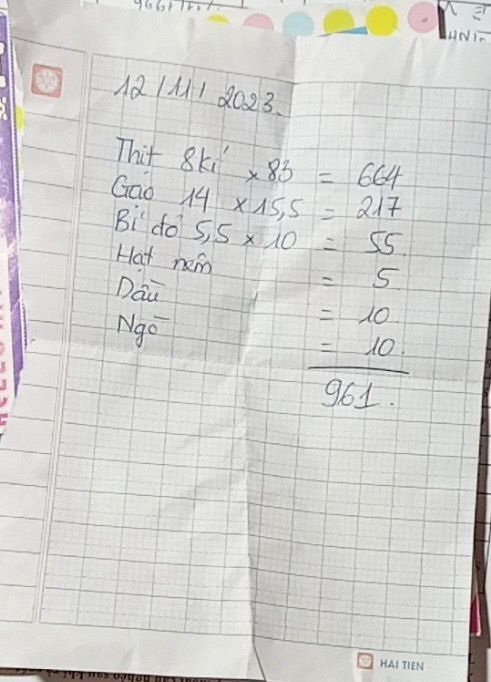 12/11/2023.
Thịt 8kí × 83 = 664
Gạo 14 × 15,5 = 217
Bí đỏ 5,5 × 10 = 55
Hạt nêm = 5
Dầu = 10
Ngò = 10.
961.
HAI TIEN